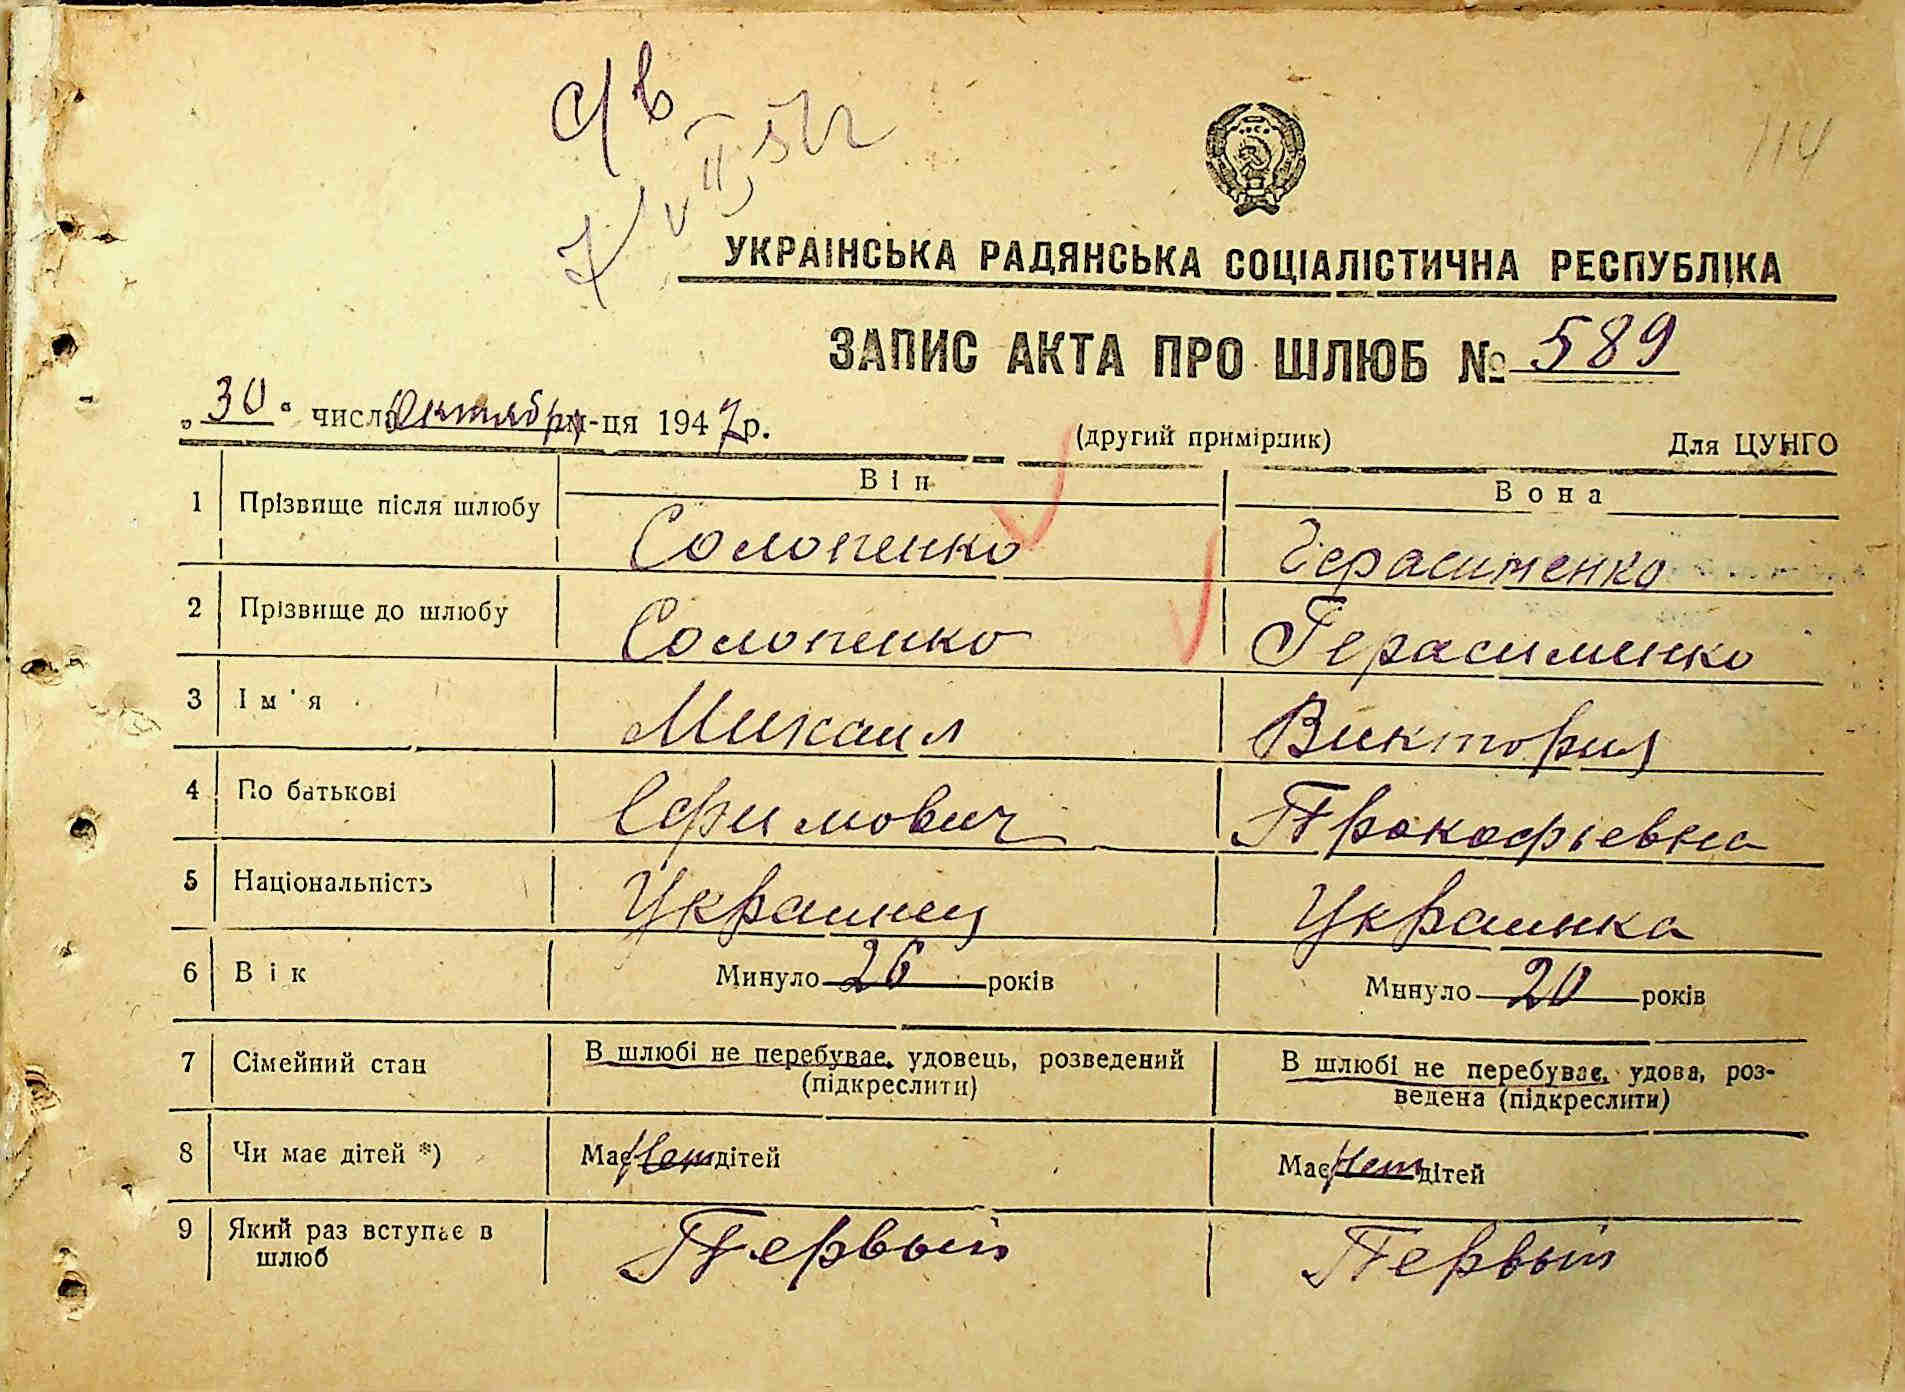 с/в
114
УКРАЇНСЬКА РАДЯНСЬКА СОЦІАЛІСТИЧНА РЕСПУБЛІКА
ЗАПИС АКТА ПРО ШЛЮБ № 589
„30“ число Октября м-ця 1947 р.
(другий примірник) Для ЦУНГО
Він Вона
1 Прізвище після шлюбу Солопенко Герасименко
2 Прізвище до шлюбу Солопенко Герасименко
3 Ім'я Михаил Виктория
4 По батькові Ефимович Прокофьевна
5 Національність Украинец Украинка
6 Вік Минуло 26 років Минуло 20 років
7 Сімейний стан В шлюбі не перебуває, удовець, розведений (підкреслити) В шлюбі не перебуває, удова, роз-
ведена (підкреслити)
8 Чи має дітей *) Має Нет дітей Має Нет дітей
9 Який раз вступає в Первый Первый
шлюб